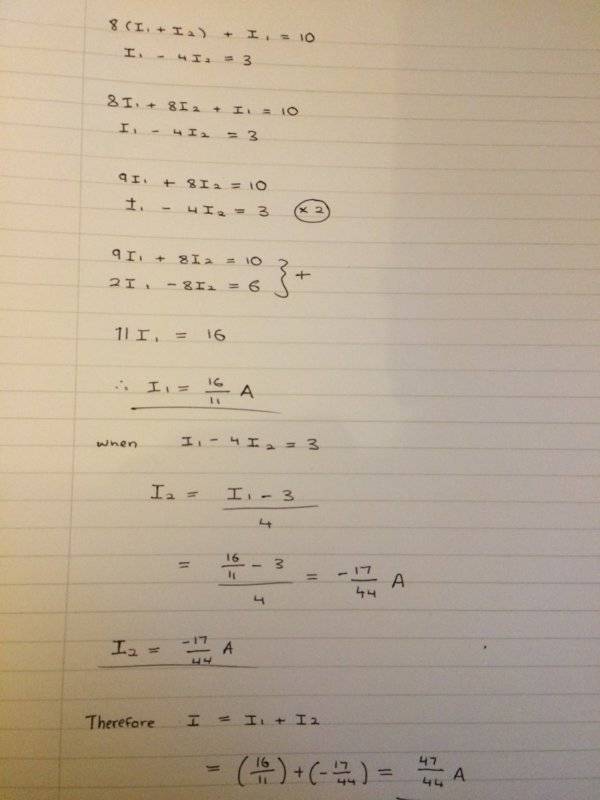 8(I₁ + I₂) + I₁ = 10
I₁ - 4I₂ = 3
8I₁ + 8I₂ + I₁ = 10
I₁ - 4I₂ = 3
9I₁ + 8I₂ = 10
I₁ - 4I₂ = 3 (×2)
9I₁ + 8I₂ = 10
2I₁ - 8I₂ = 6 } +
11I₁ = 16
∴ I₁ = 16/11 A
when I₁ - 4I₂ = 3
I₂ = (I₁ - 3)/4
= (16/11 - 3)/4 = -17/44 A
I₂ = -17/44 A
Therefore I = I₁ + I₂
= (16/11) + (-17/44) = 47/44 A